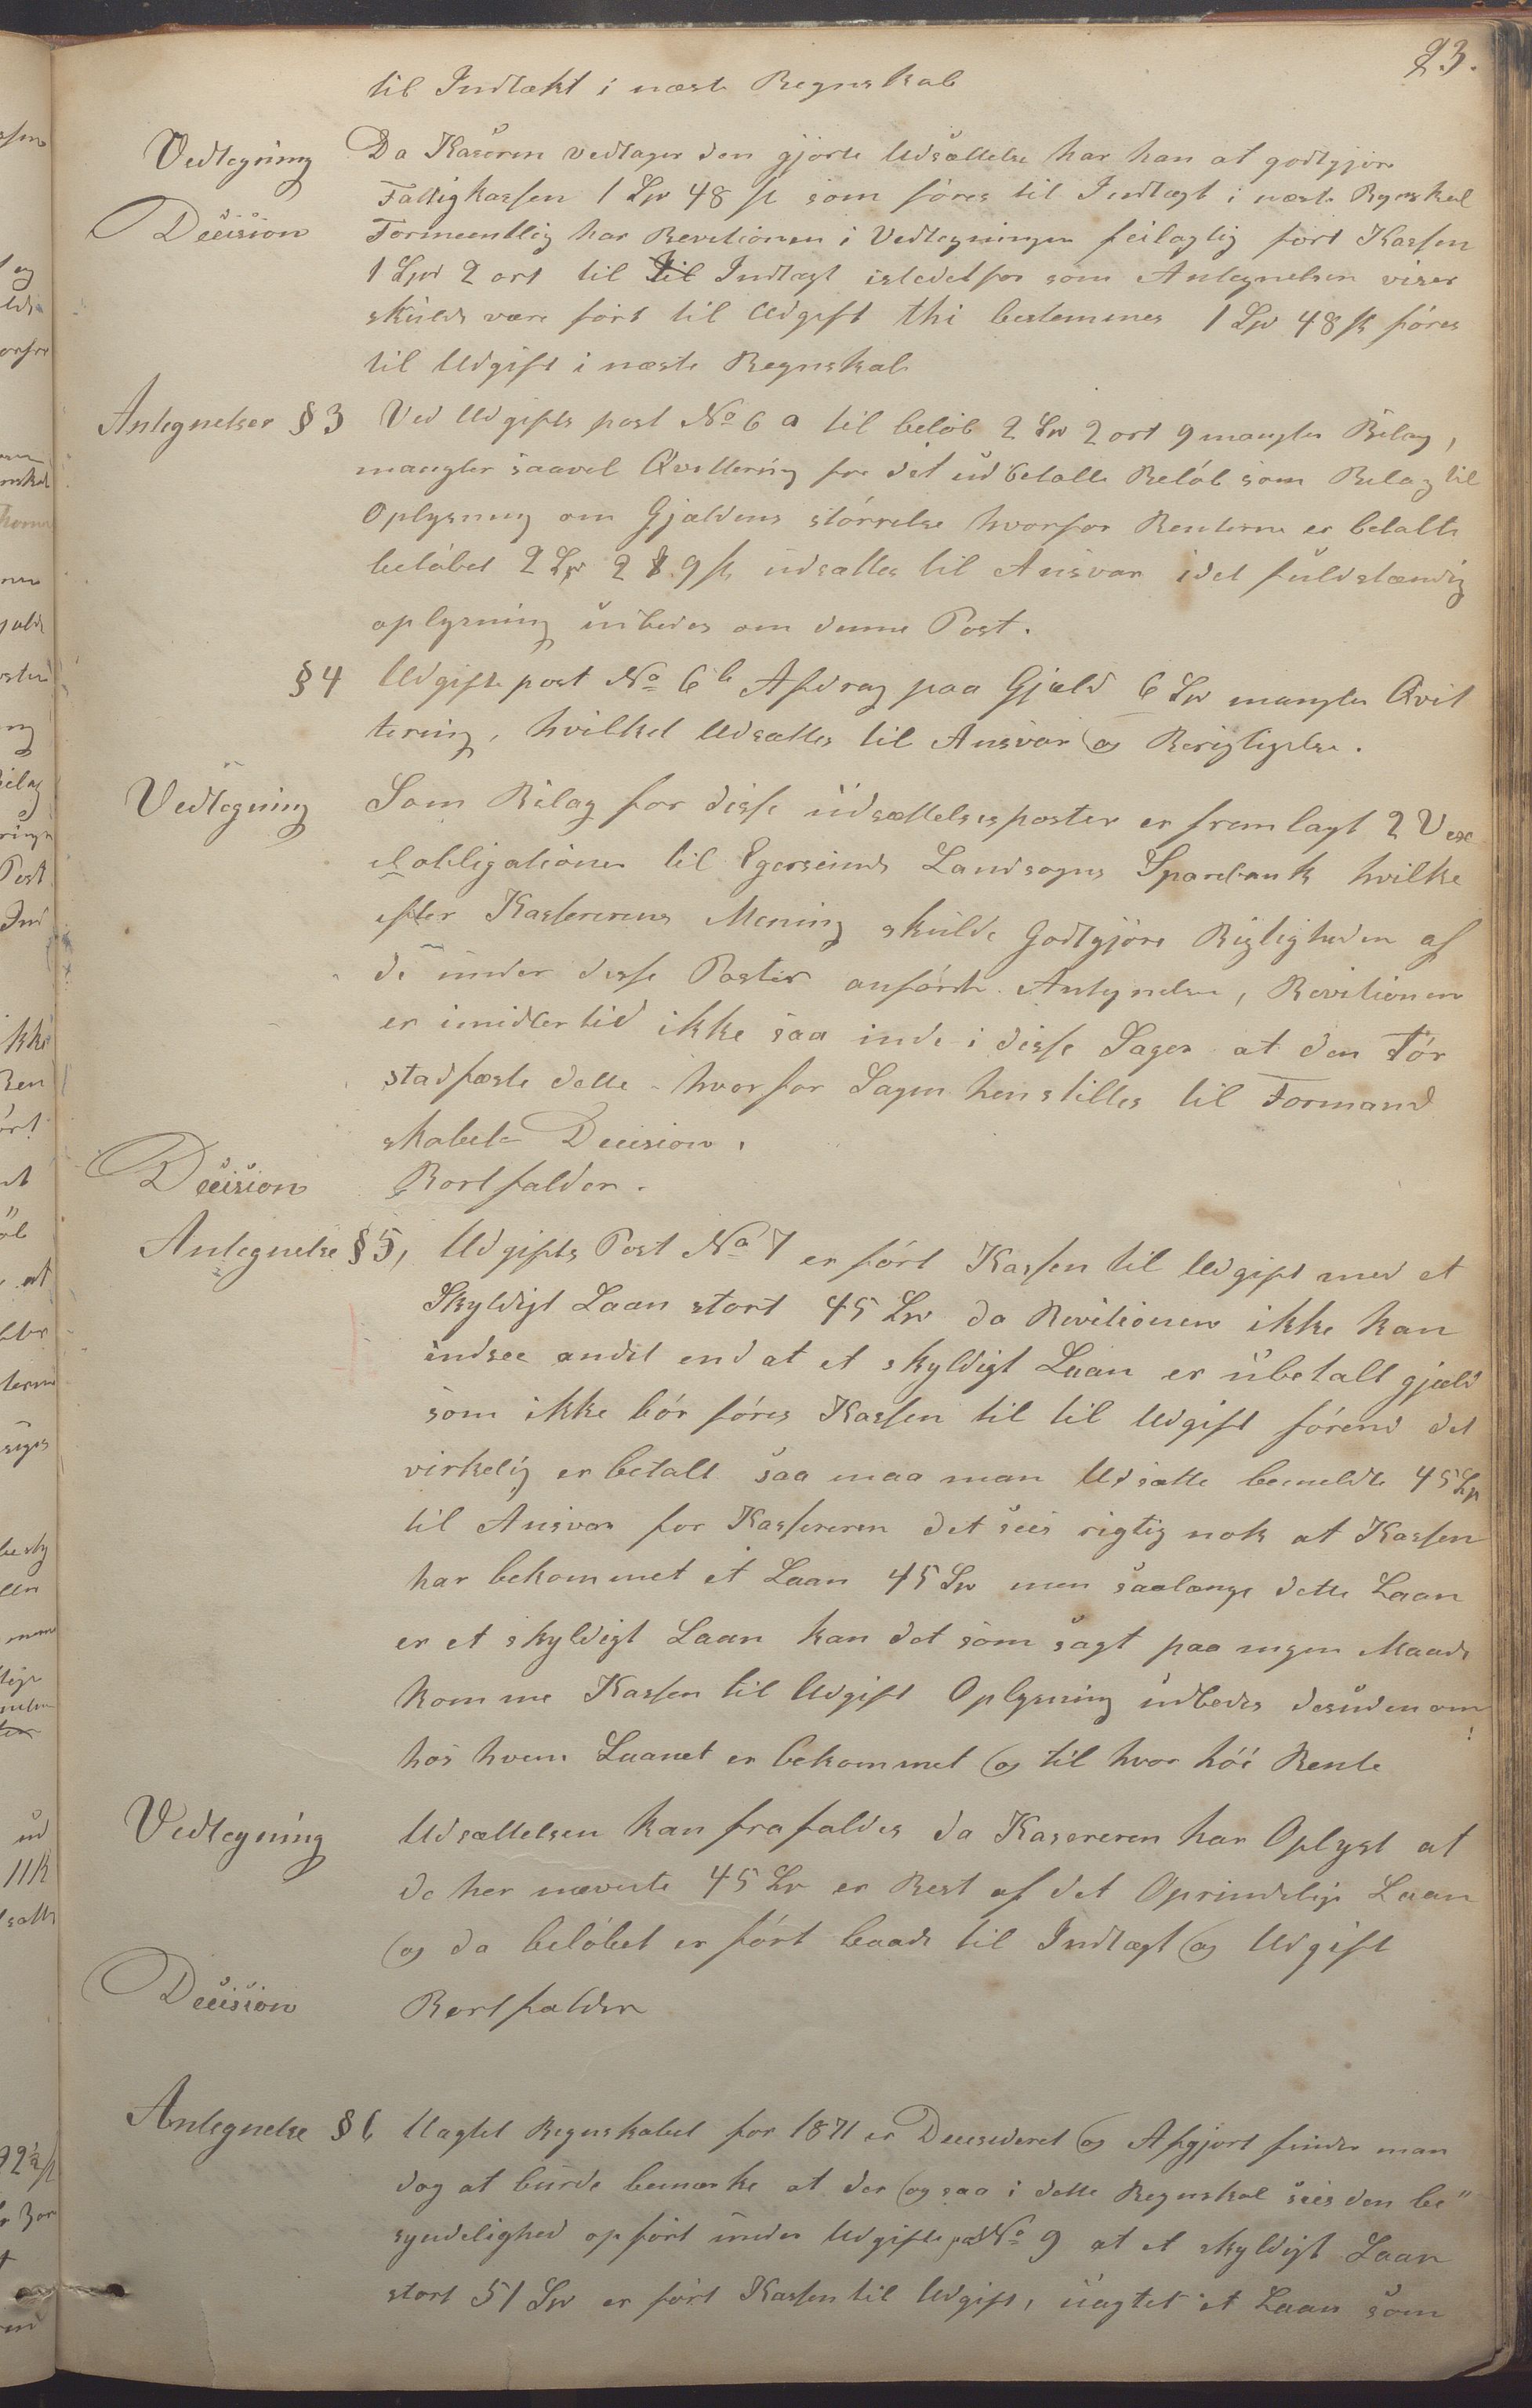 23.
til Indtækt i næste Regnskab
Vedtegning Da Kaseren vedtager den gjorte Udsættelse har han at godtgjøre
Fattigkassen 1 Spd 48 sk som føres til Indtægt i næste Regnskab
Decision Formentlig har Revitionen i Vedtegningen feilagtig ført Kassen
1 Spd 2 ort til Indtægt istedetfor som Antegnelsen viser
skulde være ført til Udgift thi bestemmes 1 Spd 48 sk føres
til Udgift i næste Regnskab
Antegnelser § 3 Ved Udgifts post No 6 a til beløb 2 Spd 2 ort 9 mangler Bilag,
mangler saavel Qvittering for det udbetalte Beløb som Bilag til
Oplysning om Gjældens størrelse hvorfor Renterne er betalte
beløbet 2 Spd 2 9 sk udsættes til Ansvar idet fuldstændig
oplysning udbedes om denne Post.
§ 4 Udgifts post No 6 b Afdrag paa Gjæld 6 Spd mangler Qvit
tering, hvilket Udsættes til Ansvar og Berigtigelse.
Vedtegning Som Bilag for disse üdsættelsesposter er fremlagt 2 Vex
elobligationer til Egersunds Landsogns Sparebank hvilke
efter Kassererens Mening skulde Godtgjøre Rigtigheden af
de under disse Poster anførte Antegnelser, Revitionen
er imidlertid ikke saa inde i disse Sager at den Tør
stadfæste dette - hvorfor Sagen henstilles til Formand
skabets Decision.
Decision Bortfalder.
Antegnelse § 5, Udgifts Post No 7 er ført Kassen til Udgift med et
Skyldigt Laan stort 45 Spd da Revitionen ikke kan
indsee andet end at et skyldigt Laan er übetalt gjæld
som ikke bør føres Kassen til til Udgift førend det
virkelig er betalt saa maa man Udsætte bemeldte 45 Sp
til Ansvar for Kassereren det sees rigtig nok at Kassen
har bekommet et Laan 45 Spd men saalænge dette Laan
er et skyldigt Laan kan det som sagt paa ingen Maade
komme Kassen til Udgift Oplysning udbedes desuden om
hos hvem Laanet er bekommet og til hvor høi Rente
Vedtegning Udsættelsen kan frafaldes da Kasereren har Oplyst at
de her nævnte 45 Spd er Rest af det Oprindelige Laan
og da beløbet er ført baade til Indtægt og Udgift
Decision Bortfalder
Antegnelse § 6 Uagtet Regnskabet for 1871 er Decideret og Afgjort finder man
dog at burde bemærke at der ogsaa i dette Regnskab sees den be"
syndelighed opført under Udgifts No 9 at et skyldigt Laan
stort 51 Spd er ført Kassen til Udgift, üagtet et Laan som